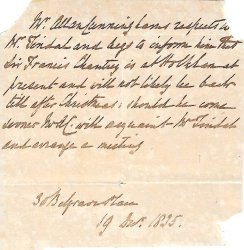 Mr. Allan Cunningham's respects to
Mr. Tindal and begs to inform him that
Sir Francis Chantrey is at Holkham at
present and will not likely be back
till after Christmas: should he come
sooner Mr A.C. will acquaint Mr Tindal
and arrange a meeting
30 Belgrave Place
19 Nov. 1835.